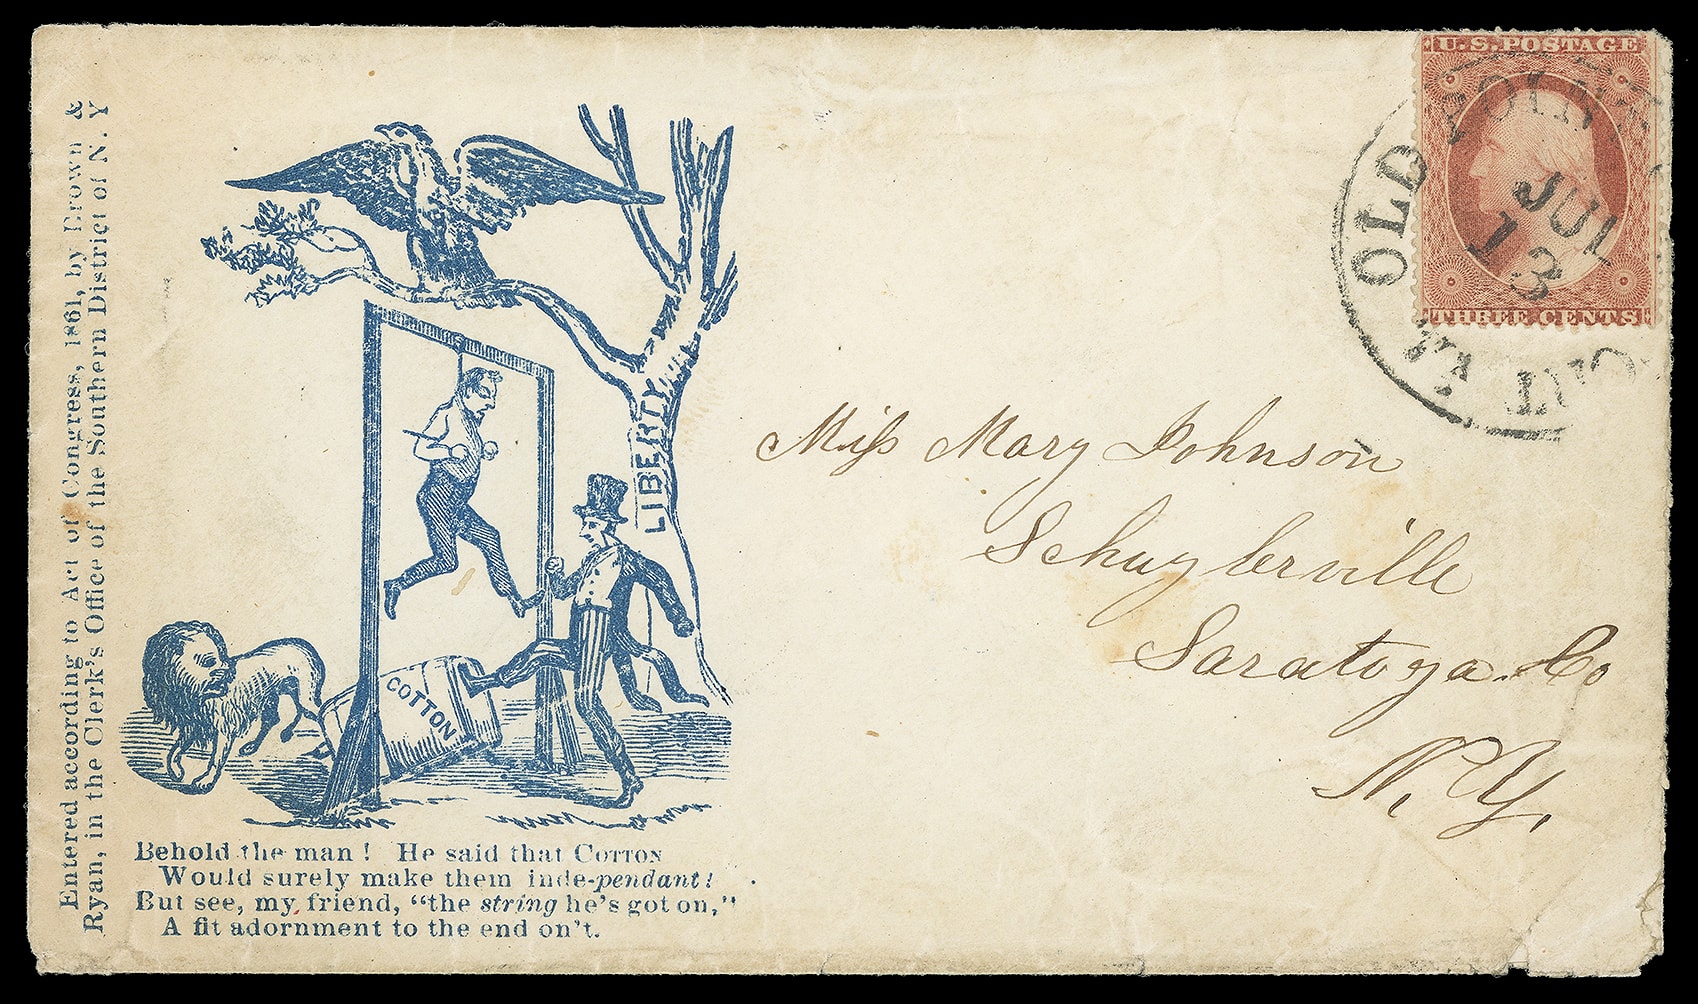 Entered according to Act of Congress, 1861, by Brown &
Ryan, in the Clerk's Office of the Southern District of N. Y
LIBERTY
COTTON
Behold the man! He said that COTTON
Would surely make them inde-pendant!
But see, my friend, "the string he's got on,"
A fit adornment to the end on't.
U.S. POSTAGE
THREE CENTS
OLD POINT COMFORT VA.
JUL
13
Miss Mary Johnson
Schuylerville
Saratoga. Co
N. Y.